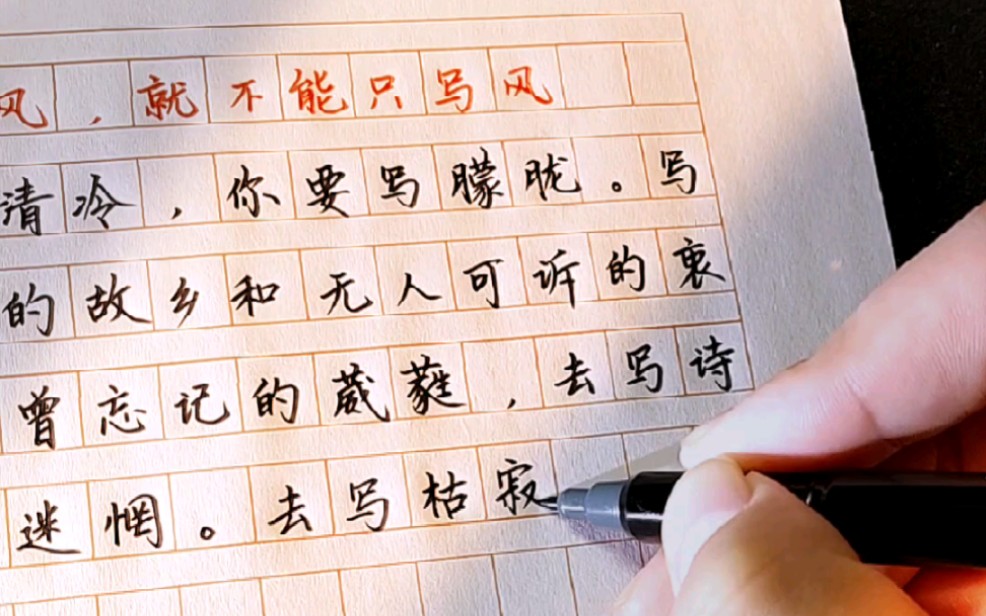 风，就不能只写风
清冷，你要写朦胧。写
的故乡和无人可诉的衷
曾忘记的葳蕤，去写诗
迷惘。去写枯寂